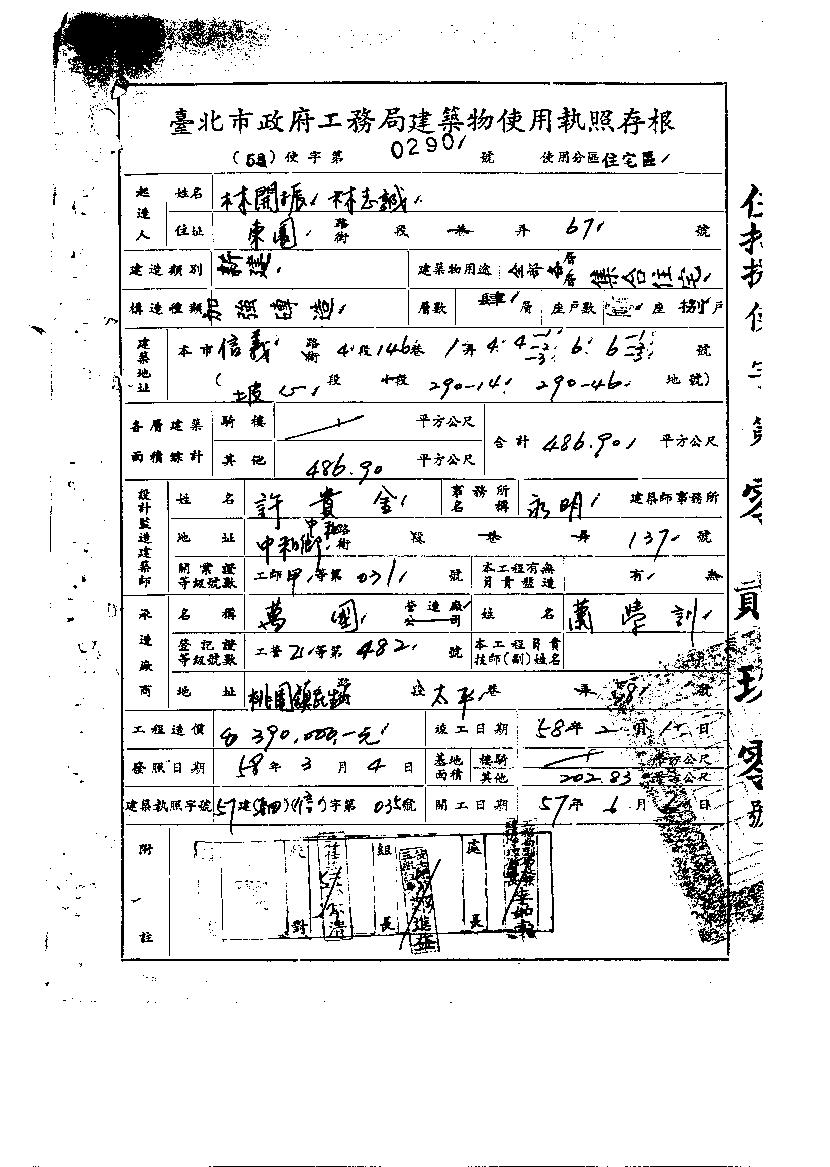 臺北市政府工務局建築物使用執照存根
(58)使字第 0290 號 使用分區 住宅區
起造人 姓名 林開振 林志誠
住址 東園 路街 段 巷 弄 67 號
建造類別 新建 建築物用途 全部各層 集合住宅
構造種類 加強磚造 層數 肆 層 座戶數 座 捌 戶
建築地址 本市 信義 路街 4 段 146 巷 1 弄 4. 4-1 -2 -3 6. 6 號
( 坡心 段 小段 290-14 290-46 地號)
各層建築面積綜計 騎樓 平方公尺 合計 486.90 平方公尺
其他 486.90 平方公尺
設計監造建築師 姓名 許貴金 事務所名稱 永明 建築師事務所
地址 中和鄉 中和路街 段 巷 弄 137 號
開業證等級號數 工師 甲 等第 031 號 本工程有無負責監造 有 無
承造廠商 名稱 萬國 營造廠公司 姓名 蕭學訓
登記證等級號數 工營 乙 等第 482 號 本工程負責技師(副)姓名
地址 桃園鎮 路 段 太平 巷 弄 號
工程造價 390,000.-元 竣工日期 58年2月1日
發照日期 58年3月4日 基地面積 樓騎 平方公尺
其他 202.83 平方公尺
建築執照字號 57建 字第 035 號 開工日期 57年6月 日
附註
校對 組長 處長
使字第零貳玖零號